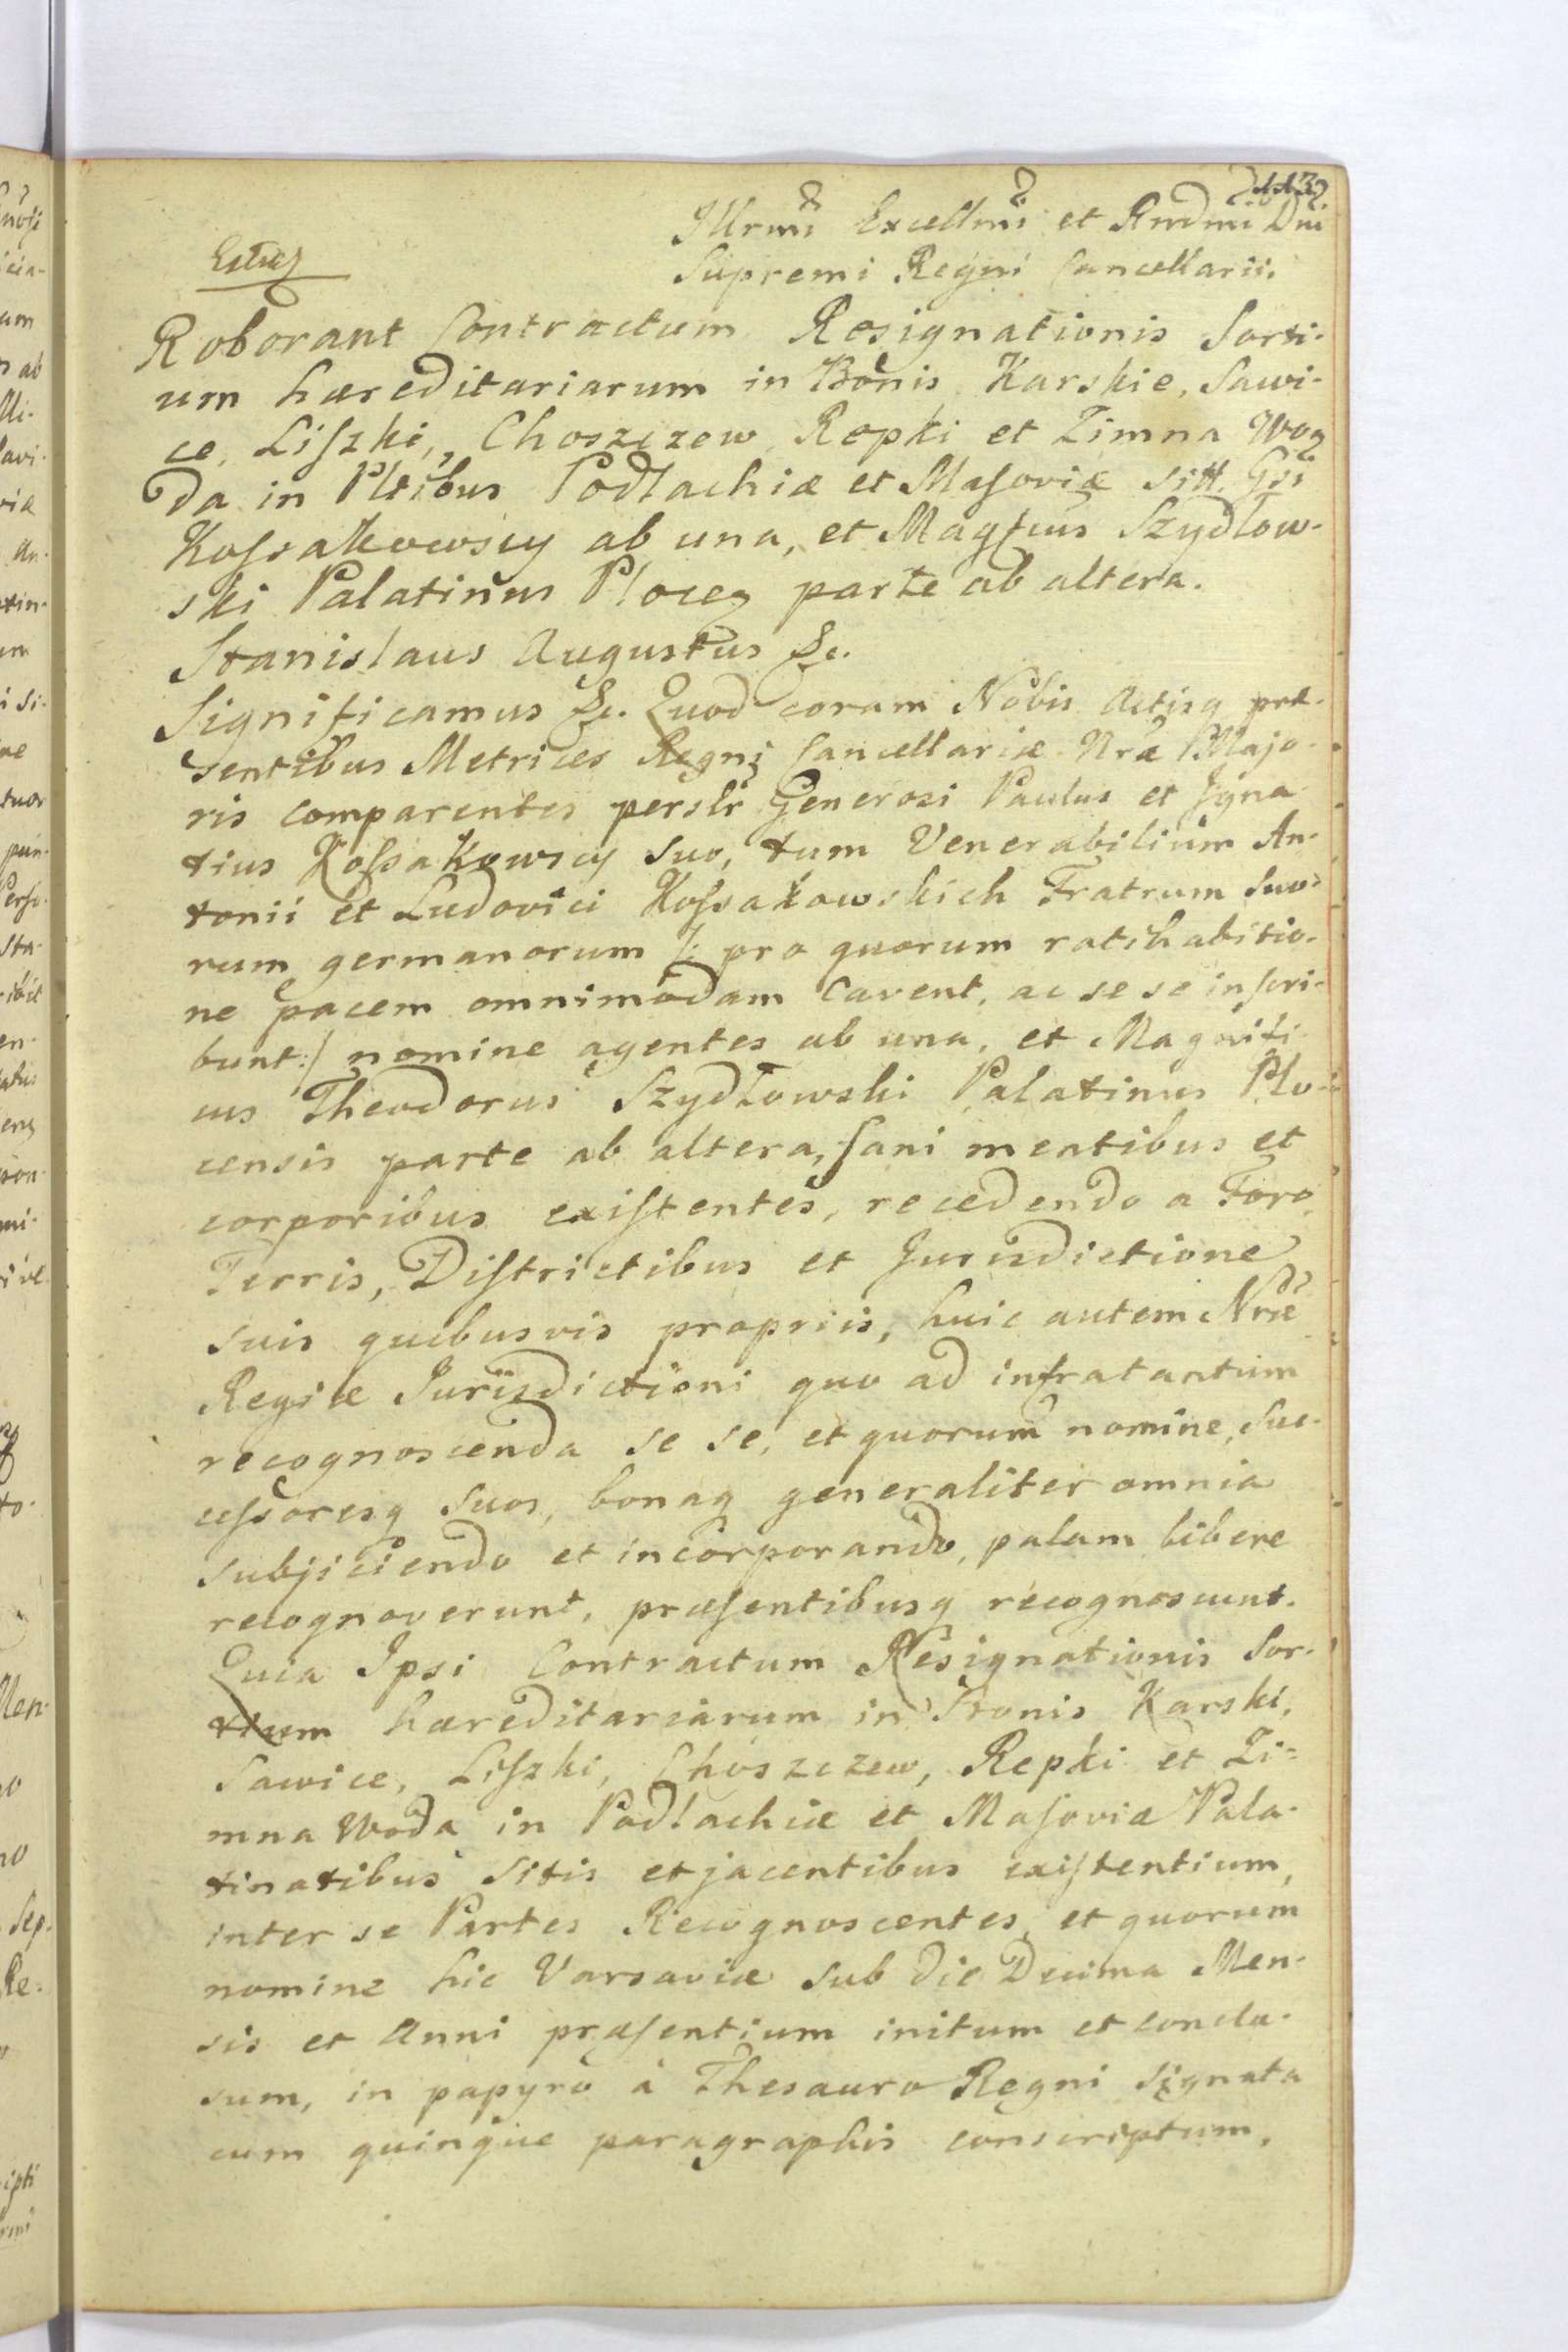 113
Illrmi Excellmi et Rndmi Dni
Supremi Regni Cancellarii.
Roborant Contractum Resignationis Sorti-
um hæreditariarum in Bonis Karskie, Sawi-
ce, Liszki, Choszczew Repki et Zimna Wo
da in Pltibus Podlachiæ et Masoviæ sitt. Gsi
Kossakowscy ab una, et Magfcus Szydłow-
ski Palatinus Plocen parte ab altera.
Stanislaus Augustus &c.
Significamus &c. Quod coram Nobis Actisq præ-
sentibus Metrices Regni Cancellariæ Nræ Majo-
ris comparentes persler Generosi Paulus et Igna
tius Kossakowscy suo, tum Venerabilium An-
tonii et Ludovici Kossakowskich Fratrum Suo-
rum germanorum /: pro quorum ratihabitio-
ne pacem omnimodam cavent, ac se se inscri-
bunt :/ nomine agentes ab una, et Magnifi
cus Theodorus Szydłowski Palatinus Plo-
censis parte ab altera, sani mentibus et
corporibus existentes, recedendo a Foro,
Terris, Districtibus et Jurisdictione
suis quibusvis propriis, huic autem Nræ
Regiæ Jurisdictioni quo ad infratantum
recognoscenda se se, et quorum nomine, Suc-
cessoresq suos, bonaq generaliter omnia
subjiciendo et incorporando, palam libere
recognoverunt, præsentibusq recognoscunt.
Quia Ipsi Contractum Resignationis Sor-
tium hæreditariarum in Bonis Karski,
Sawice, Liszki, Choszczew, Repki et Zi=
mna Woda in Podlachiæ et Masoviæ Pala-
tinatibus sitis et jacentibus existentium,
inter se Partes Recognoscentes, et quorum
nomine hic Varsaviæ sub die Decima Men-
sis et Anni præsentium initum et conclu-
sum, in papyro à Thesauro Regni signata
cum quinque paragraphis conscriptum,